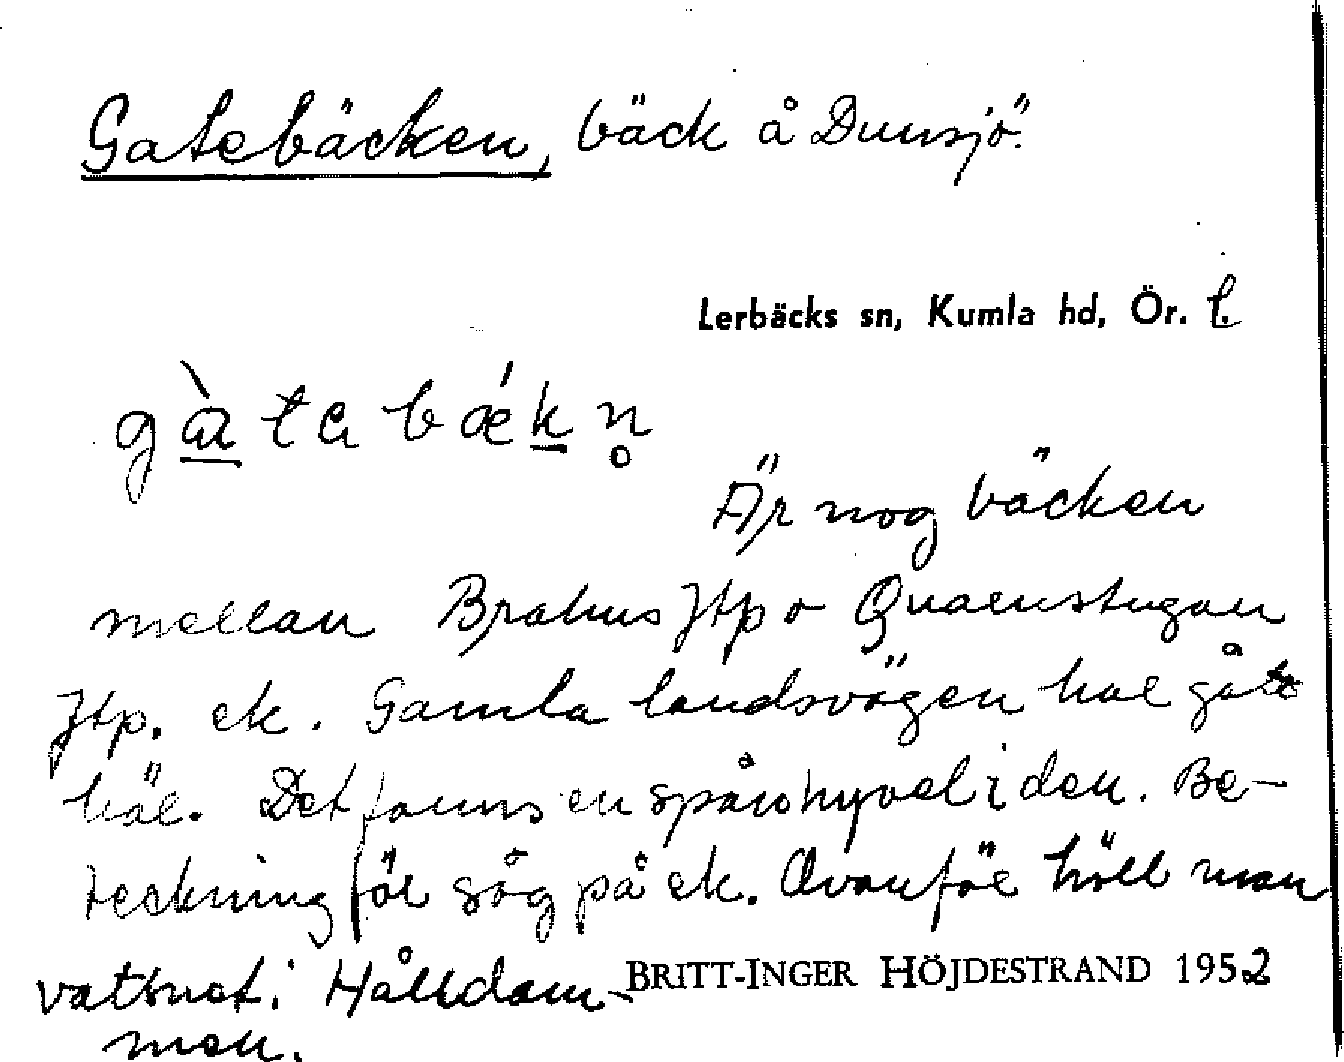 Gatebäcken, bäck å Dunsjö.
Lerbäcks sn, Kumla hd, Ör. l.
gàtebǽkn̥
Är nog bäcken
mellan Brahus Jtp o Qvarnstugan
Jtp. ek. Gamla landsvägen har gått
här. Det fanns en spånhyvel i den. Be-
teckning för såg på ek. Ovanför höll man
vattnet i Hålldam-
men.
BRITT-INGER HÖJDESTRAND 1952